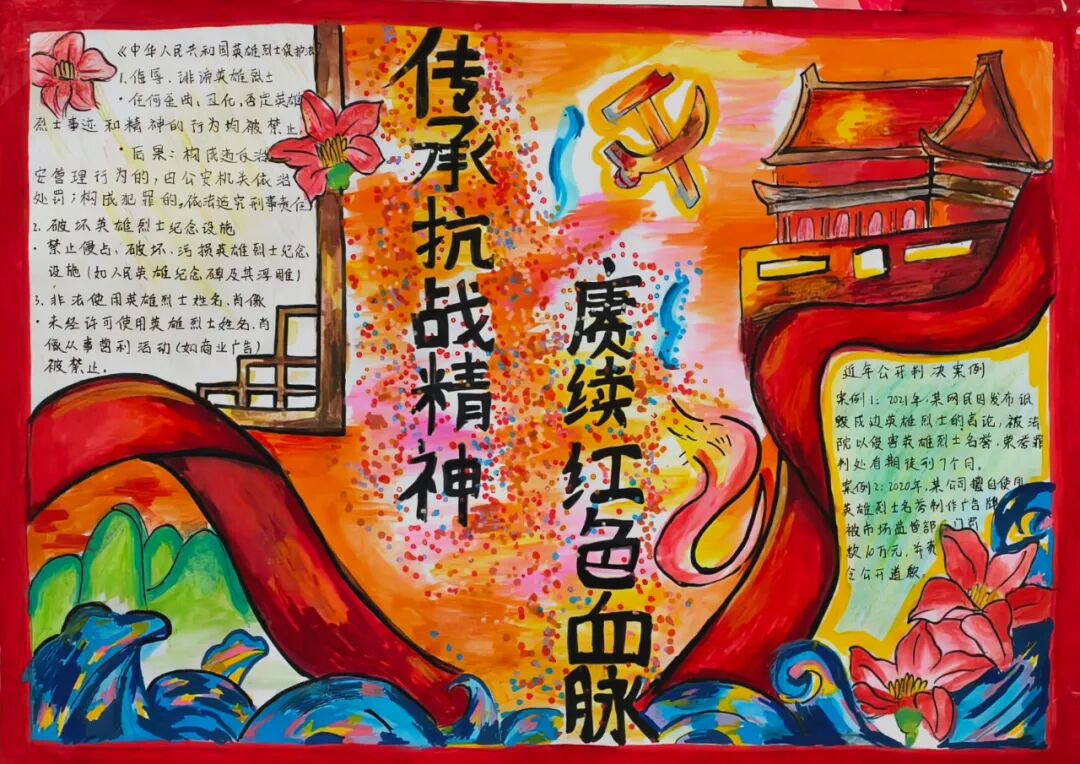 《中华人民共和国英雄烈士保护法》
1. 侮辱、诽谤英雄烈士
·任何歪曲、丑化、否定英雄
烈士事迹和精神的行为均被禁止。
·后果：构成违反治
安管理行为的，由公安机关依法
处罚；构成犯罪的，依法追究刑事责任
2. 破坏英雄烈士纪念设施
·禁止侵占、破坏、污损英雄烈士纪念
设施（如人民英雄纪念碑及其浮雕）
3. 非法使用英雄烈士姓名、肖像
·未经许可使用英雄烈士姓名、肖
像从事营利活动（如商业广告）
被禁止。
传承抗战精神
赓续红色血脉
近年公开判决案例
案例1：2021年，某网民因发布诋
毁戍边英雄烈士的言论，被法
院以侵害英雄烈士名誉、荣誉罪
判处有期徒刑7个月。
案例2：2020年，某公司擅自使用
英雄烈士名誉制作广告牌
被市场监管部门罚
款10万元，并责
令公开道歉。